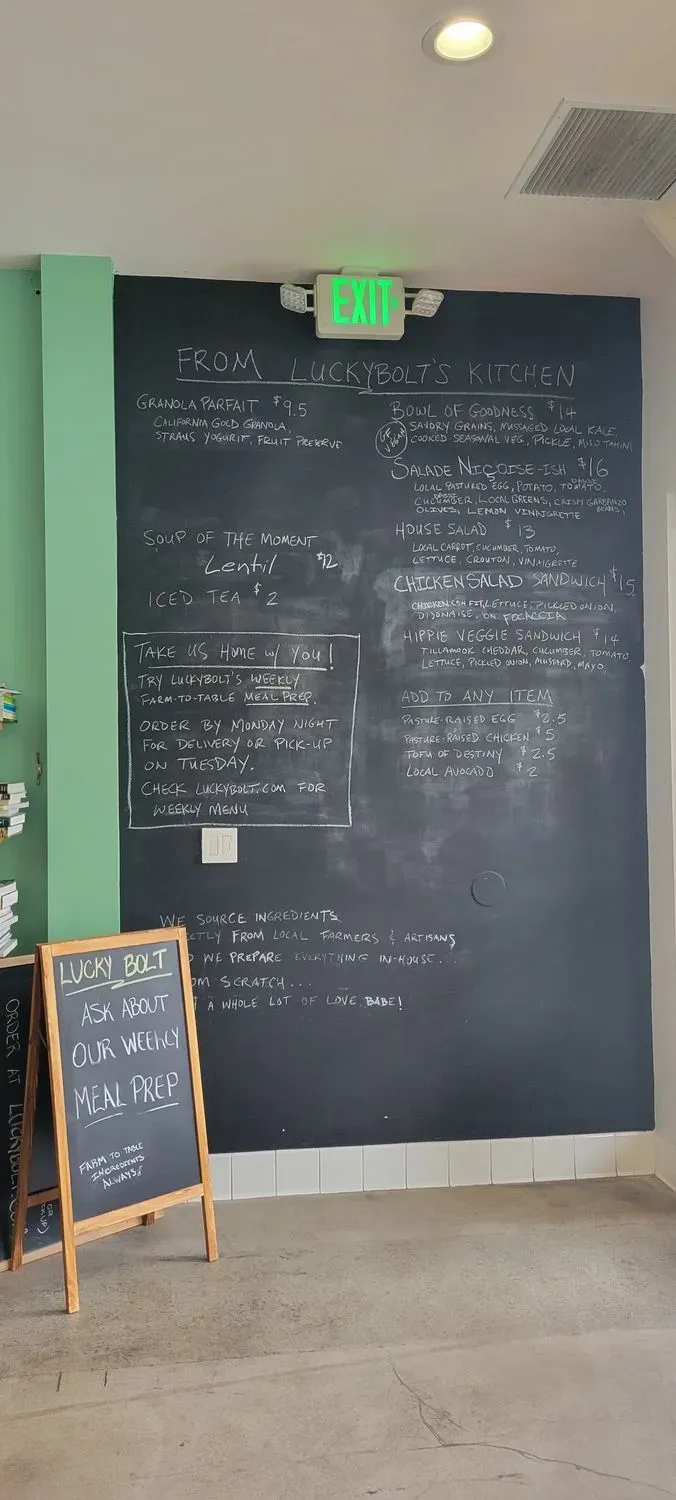 EXIT
FROM LUCKYBOLT'S KITCHEN
GRANOLA PARFAIT $9.5
CALIFORNIA GOLD GRANOLA,
STRAUS YOGURIT, FRUIT PRESERVE
SOUP OF THE MOMENT
Lentil $12
ICED TEA $2
TAKE US HOME W/ YOU!
TRY LUCKYBOLT'S WEEKLY
FARM-TO-TABLE MEAL PREP.
ORDER BY MONDAY NIGHT
FOR DELIVERY OR PICK-UP
ON TUESDAY.
CHECK LUCKYBOLT.COM FOR
WEEKLY MENU
BOWL OF GOODNESS $14
GF
VEGAN
SAVORY GRAINS, MUSSAGED LOCAL KALE,
COOKED SEASONAL VEG, PICKLE, MISO TAHINI
SALADE NIÇOISE-ISH $16
LOCAL PASTURED EGG, POTATO, TOMATO,
CUCUMBER, LOCAL GREENS, CRISPY GARBANZO
BEANS,
OLIVES, LEMON VINAIGRETTE
HOUSE SALAD $13
LOCAL CARROT, CUCUMBER, TOMATO,
LETTUCE, CROUTON, VINAIGRETTE
CHICKEN SALAD SANDWICH $15
CHICKEN CONFIT, LETTUCE, PICKLED ONION,
DIJONAISE, ON FOCACCIA
HIPPIE VEGGIE SANDWICH $14
TILLAMOOK CHEDDAR, CUCUMBER, TOMATO,
LETTUCE, PICKLED ONION, MUSTARD, MAYO,
ADD TO ANY ITEM
PASTURE-RAISED EGG $2.5
PASTURE-RAISED CHICKEN $5
TOFU OF DESTINY $2.5
LOCAL AVOCADO $2
WE SOURCE INGREDIENTS
ECTLY FROM LOCAL FARMERS & ARTISANS
WE PREPARE EVERYTHING IN-HOUSE...
OM SCRATCH...
A WHOLE LOT OF LOVE, BABE!
LUCKY BOLT
ASK ABOUT
OUR WEEKLY
MEAL PREP
FARM TO TABLE
INGREDIENTS
ALWAYS!
ORDER AT LUCKYBOLT.C
OR
KUP)